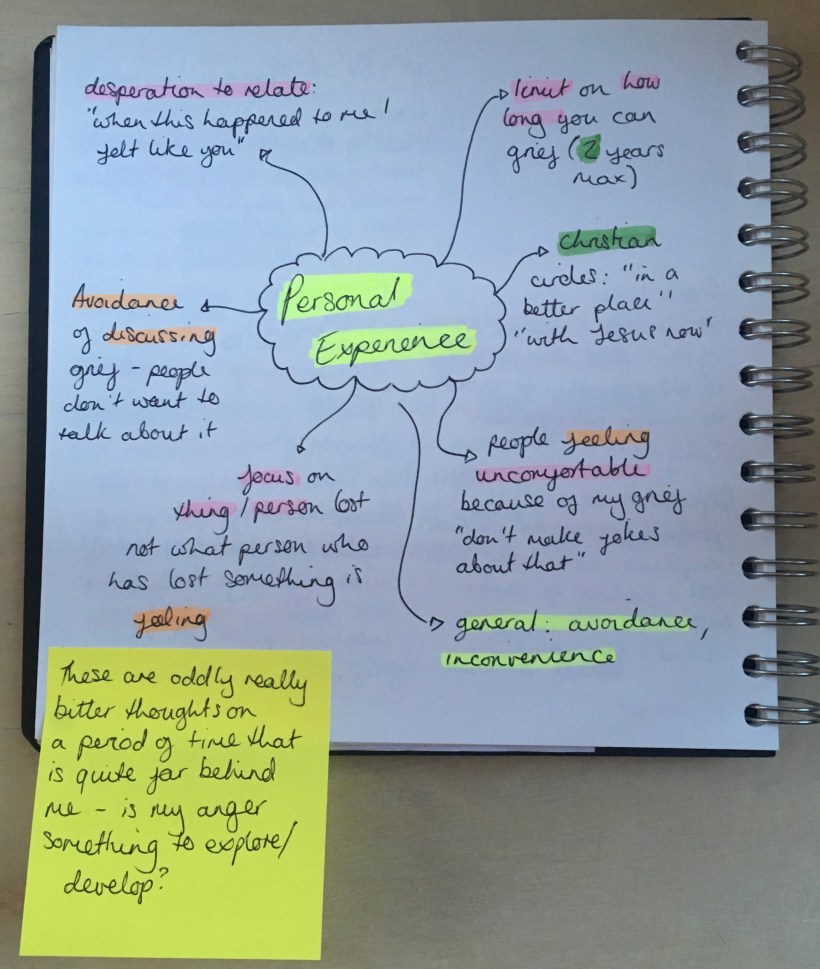 desperation to relate:
"when this happened to me I
felt like you"
limit on how
long you can
grief (2 years
max)
Christian
circles: "in a
better place"
"with Jesus now"
Personal
Experience
Avoidance
of discussing
grief - people
don't want to
talk about it
focus on
thing / person lost
not what person who
has lost something is
feeling
people feeling
uncomfortable
because of my grief
"don't make jokes
about that"
general: avoidance,
inconvenience
These are oddly really
bitter thoughts on
a period of time that
is quite far behind
me - is my anger
something to explore/
develop?